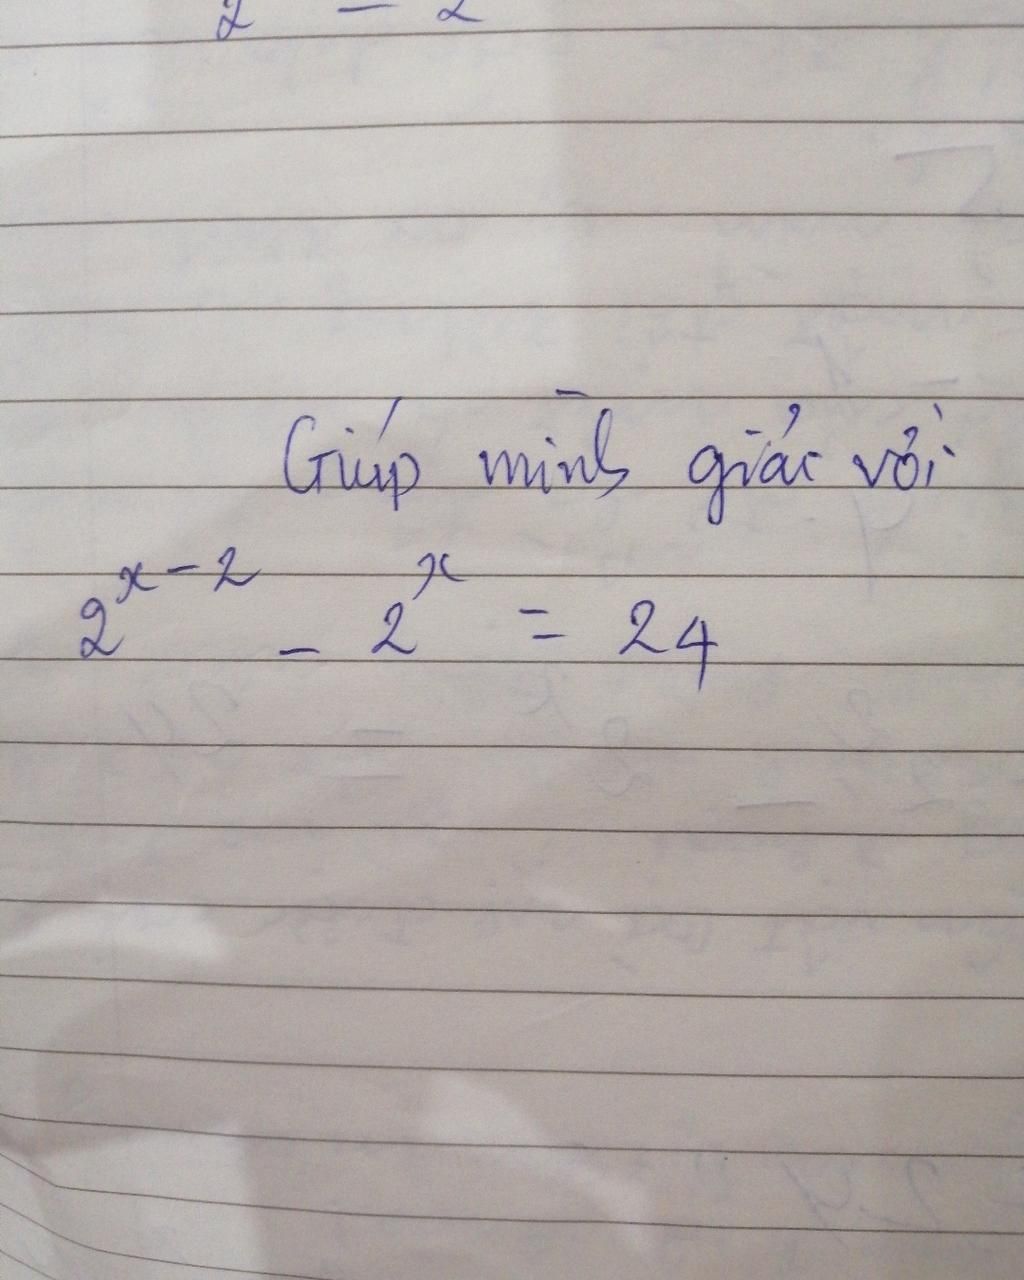 2 - 2
Giúp mình giải với
2^{x-2} - 2^x = 24